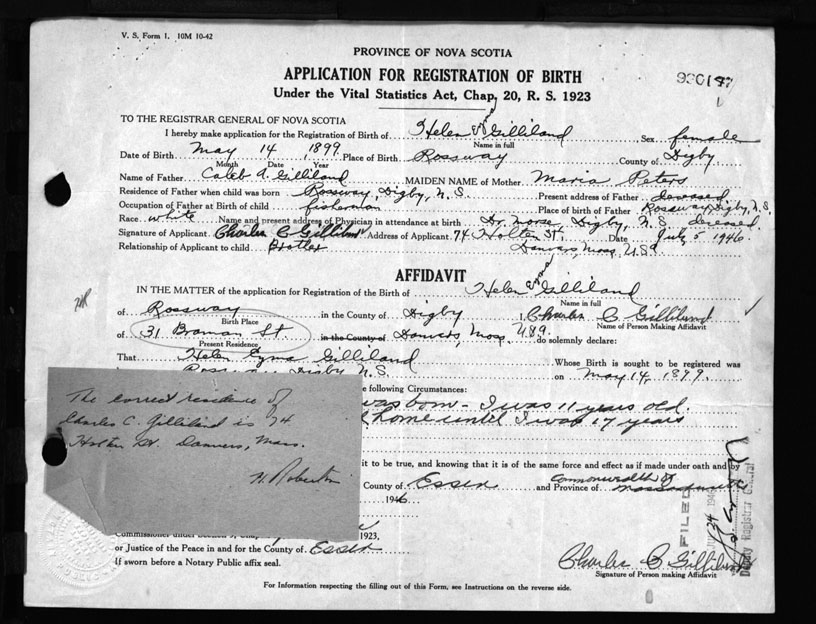 V. S. Form 1. 10M 10-42
PROVINCE OF NOVA SCOTIA
APPLICATION FOR REGISTRATION OF BIRTH
Under the Vital Statistics Act, Chap. 20, R. S. 1923
TO THE REGISTRAR GENERAL OF NOVA SCOTIA
I hereby make application for the Registration of Birth of Helen Gilliland Sex female
Name in full
Date of Birth May 14 1899 Place of Birth Rossway County of Digby
Month Date Year
Name of Father Caleb A. Gilliland MAIDEN NAME of Mother Maria Peters
Residence of Father when child was born Rossway, Digby, N.S. Present address of Father deceased
Occupation of Father at Birth of child fisherman Place of birth of Father Rossway, Digby, N.S.
Race white Name and present address of Physician in attendance at birth Dr. Morse, Digby, N.S. deceased
Signature of Applicant Charles C Gilliland Address of Applicant 74 Holten St. Date July 5 1946
Relationship of Applicant to child Brother Danvers, Mass. USA
AFFIDAVIT
IN THE MATTER of the application for Registration of the Birth of Helen Gilliland
Name in full
of Rossway in the County of Digby I, Charles C Gilliland
Birth Place Name of Person Making Affidavit
of 31 Braman St in the County of Danvers, Mass. USA. do solemnly declare:
Present Residence
That Helen Gilliland Whose Birth is sought to be registered was
Rossway Digby N.S. on May 14, 1899.
e following Circumstances:
was born - I was 11 years old.
home until I was 17 years
The correct residence of
Charles C. Gilliland is 74
Holten St. Danvers, Mass.
it to be true, and knowing that it is of the same force and effect as if made under oath and by
County of Essex and Province of Commonwealth of Massachusetts
1946
1923,
or Justice of the Peace in and for the County of Essex
If sworn before a Notary Public affix seal.
FILED
Deputy Registrar General
Charles C Gilliland
Signature of Person making Affidavit
For Information respecting the filling out of this Form, see Instructions on the reverse side.